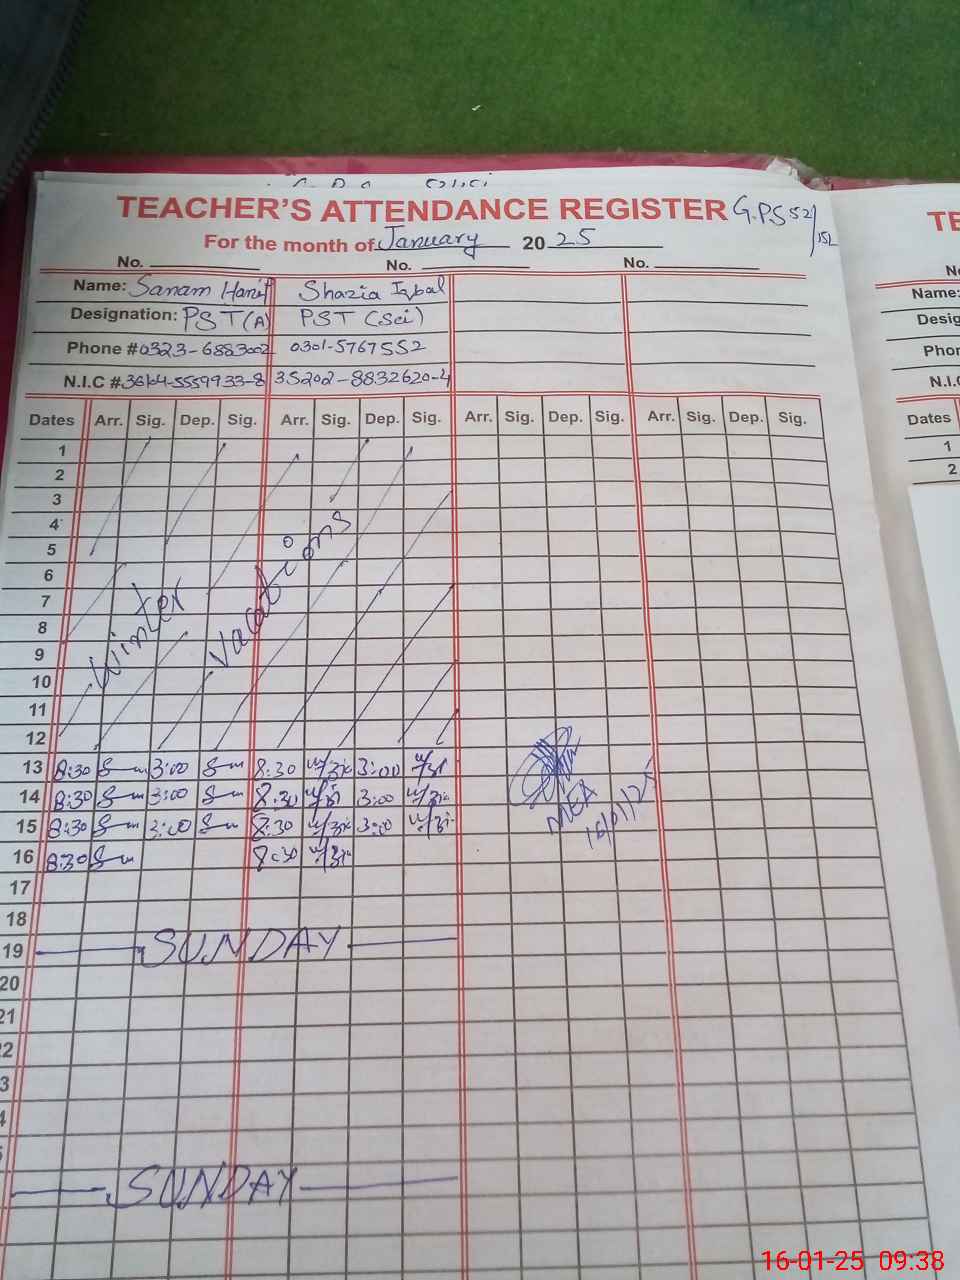 TEACHER'S ATTENDANCE REGISTER G.P.S 52/152
For the month of January 2025
No. No. No.
Name: Sanam Hanif Shazia Iqbal
Designation: PST(A) PST (Sci)
Phone #0323-6883002 0301-5767552
N.I.C #36104-5559933-8 35202-8832620-4
Dates Arr. Sig. Dep. Sig. Arr. Sig. Dep. Sig. Arr. Sig. Dep. Sig. Arr. Sig. Dep. Sig.
1
2
3
4
5
6
7
8
9
10
11
12
Winter Vacations
13 8:30 3:00 8:30 3:00
14 8:30 3:00 8:30 3:00
15 8:30 3:00 8:30 3:00
16 8:30 8:30
MEA
16/01/25
17
18
19 SUNDAY
20
21
22
3
4
SUNDAY
TE
No
Name:
Desig
Phor
N.I.C
Dates
1
2
16-01-25 09:38